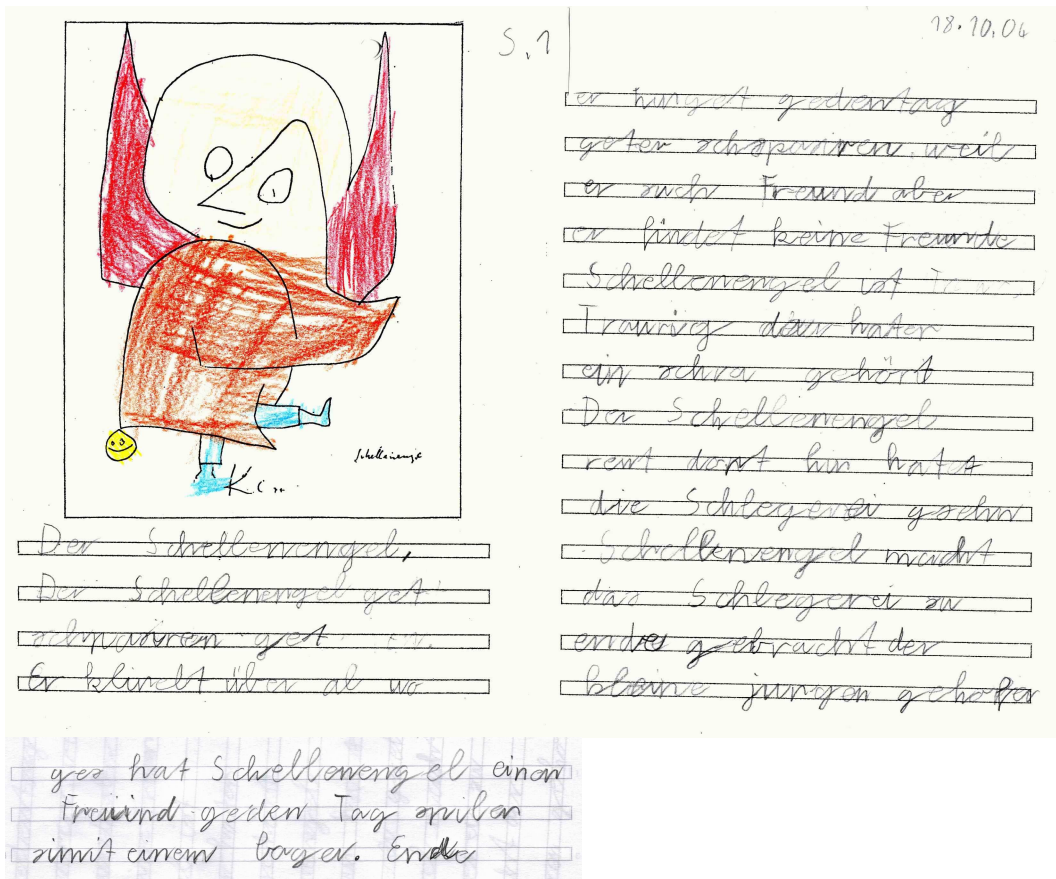 S. 1
18.10.04
Schellenengel
K C
Der Schellenengel,
Der Schellenengel get
schpaüren get
Er klinelt über al wo
er hinget gedentag
geter schspaüren weil
er such Freund aber
er findet keine Freunde
Schellenengel ist
Traurig dau hater
ein schra gehört
Der Schellenengel
rent dort hin hatet
die Schlegerei gsehn
Schellenengel macht
das Schlegerei zu
ende gebracht der
kleine jungen geholfen
yes hat Schellenengel einen
Freuind geden Tag spilen
simit einem bager. Ende